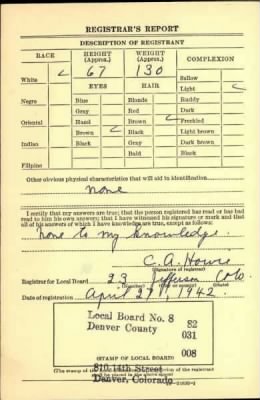 REGISTRAR'S REPORT
DESCRIPTION OF REGISTRANT
RACE HEIGHT (Approx.) WEIGHT (Approx.) COMPLEXION
67 130 Sallow
White Light
EYES HAIR Ruddy
Negro Blue Blonde Dark
Gray Red Freckled
Oriental Hazel Brown Light brown
Brown Black Dark brown
Indian Black Gray Black
Bald
Filipino
Other obvious physical characteristics that will aid in identification
None
I certify that my answers are true; that the person registered has read or has had read to him his own answers; that I have witnessed his signature or mark and that all of his answers of which I have knowledge are true, except as follows:
None to my knowledge.
C. A. Howie
(Signature of registrar)
Registrar for Local Board 23 Jefferson Colo
(Number) (City or county) (State)
Date of registration April 27, 1942
Local Board No. 8 82
Denver County 031
008
STAMP OF LOCAL BOARD
810 14th Street
(The stamp of
Denver, Colorado